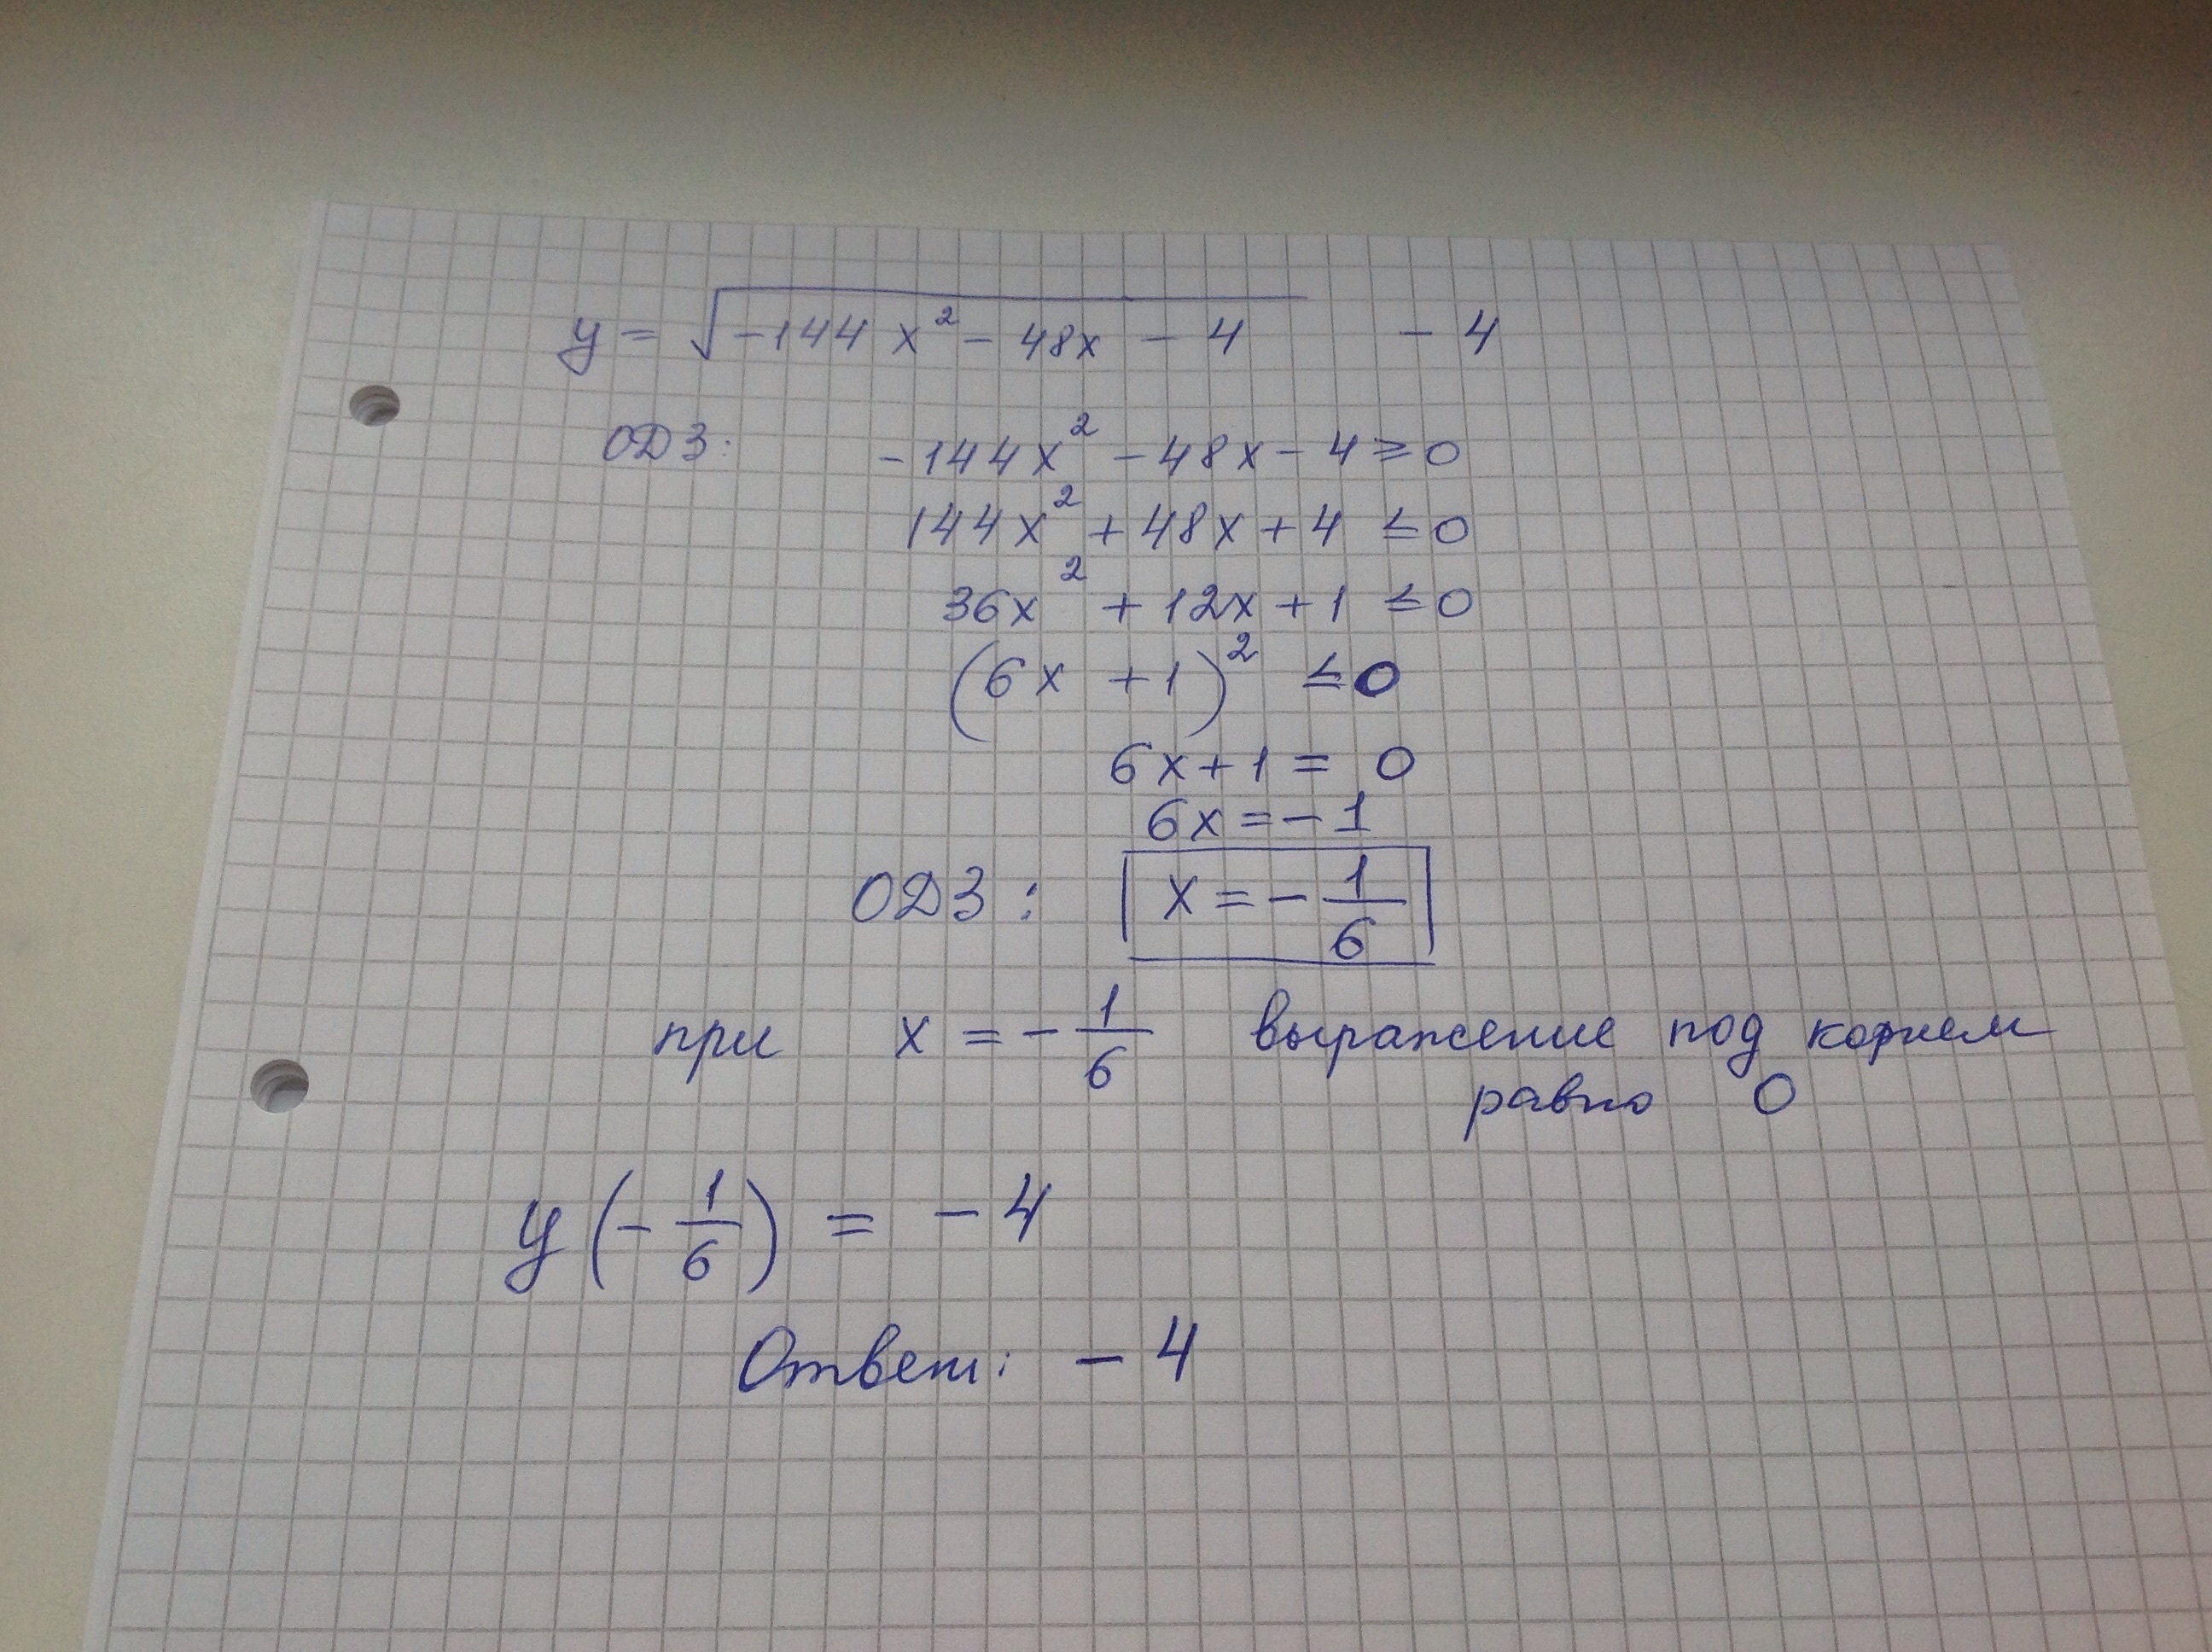 y = √(-144x² - 48x - 4) - 4
ОДЗ: -144x² - 48x - 4 ≥ 0
144x² + 48x + 4 ≤ 0
36x² + 12x + 1 ≤ 0
(6x + 1)² ≤ 0
6x + 1 = 0
6x = -1
ОДЗ: x = -1/6
при x = -1/6 выражение под корнем
равно 0
y(-1/6) = -4
Ответ: -4